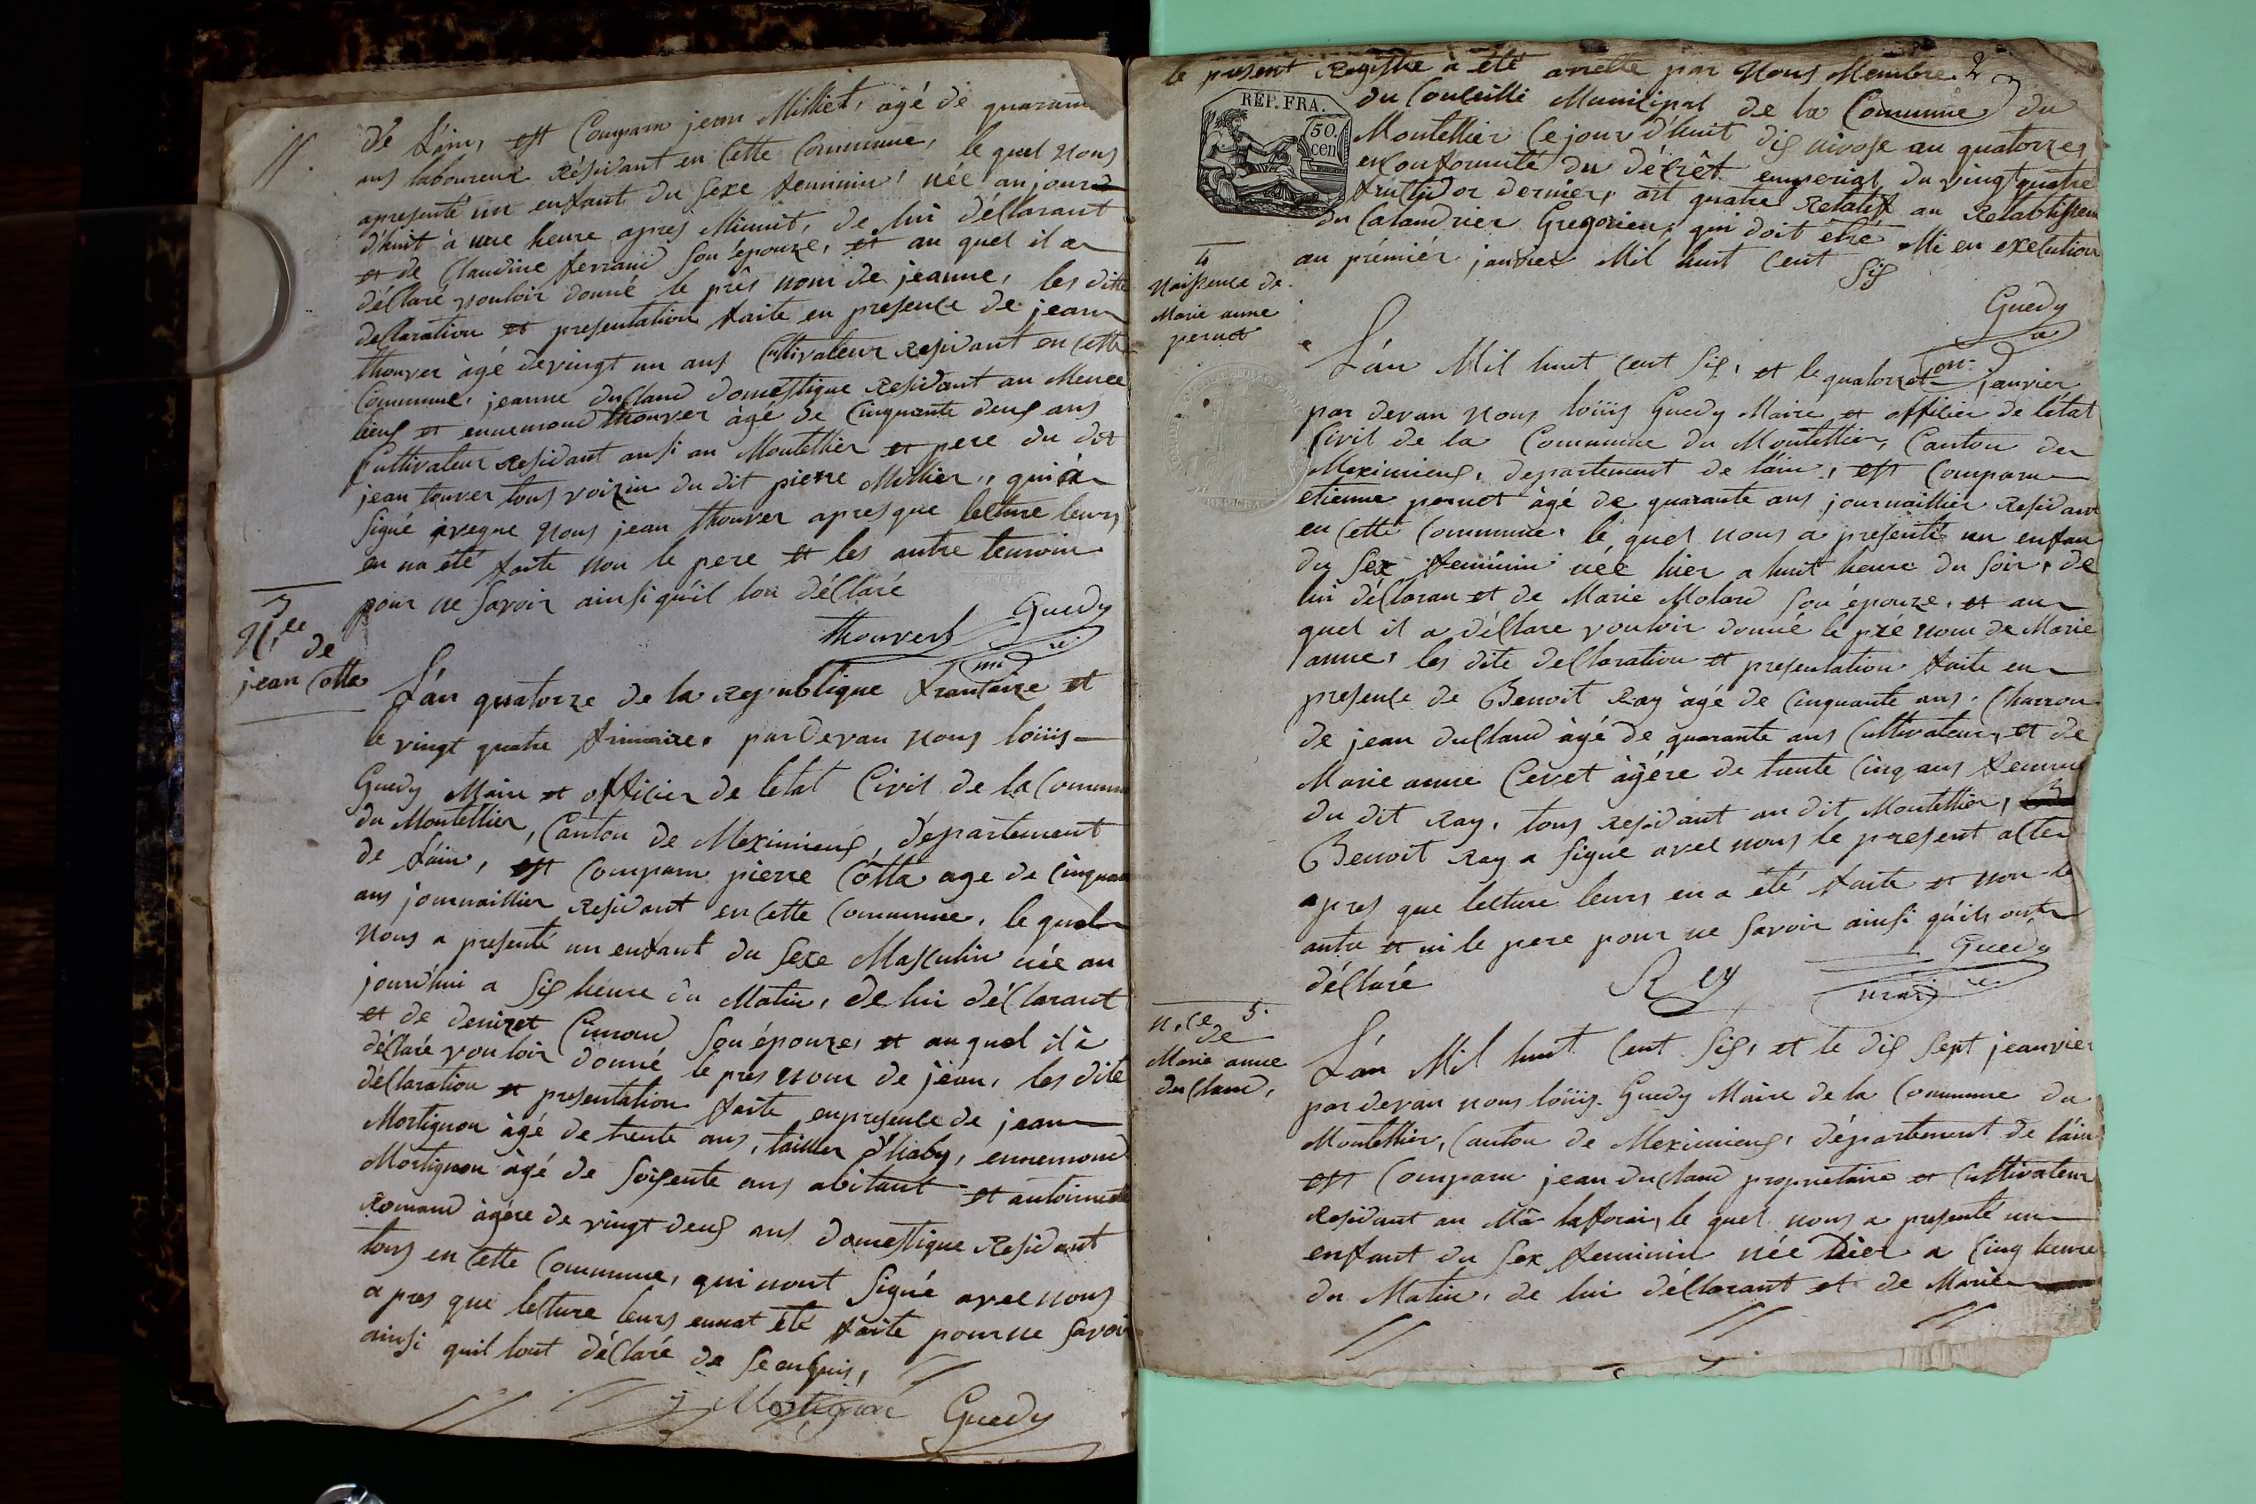 de Lain, est Comparu jean Milliet, âgé de quarante
ans laboureur Résidant en Cette Commune, le quel nous
apresenté un enfant du Sexe feminin, née aujourd
d'huit à une heure apres Minuit, de lui déClarant
et de Claudine ferrand Son épouze, et au quel il a
déClaré vouloir donné le prés nom de jeanne, les ditte
deClaration et presentation faite en presence de jean
thouver àgé de vingt un ans Cultivateur Residant en Cette
Commune, jeanne duCland domestique Residant au Meme
lieux et ennemond thouver àgé de Cinquante deux ans
Cultivateur Residant ausi au Montellier et pere du dit
jean touver tous voizin du dit pierre Millier, qui à
Signé aveque nous jean thouver apres que lecture leurs
en na été faite non le pere et les autre temoin
pour ne Savoir ainsi quil lon déClaré
thouvers Guedy
mre
3
N.ce de
jean Cotta
L'an quatorze de la Republique francaize et
le vingt quatre frimaire, par devan nous loüis
Guedy Maire et officier de letat Civil de la Commune
du Montellier, Canton de Meximieux, département
de Lain, est Comparu pierre Cotta age de Cinquante
ans journaillier Residant en Cette Commune, le quel
nous a presenté un enfant du Sexe Masculin née au
jourd'hui a Six heure du Matin, de lui déClarant
et de denizet Simond Son épouze, et au quel il à
déClaré vouloir donné le prés nom de jean, les dite
déClaration et presentation faite en presence de jean
Mortignon àgé de trente ans, tailler d'haby, ennemond
Mortignon àgé de Soixente ans abitant et antoinette
Romand àgére de vingt deux ans domestique Residant
tous en Cette Commune, qui nont Signé avec nous
apres que lecture leurs ennat été faite pour ne Savoir
ainsi quil lont déClaré de Se enquis,
j Mortignon Guedy
le present Registre à été arretté par Nous Membre 2
du Conseille Municipal de la Commune du
REP. FRA.
50.
cen
Montellier Ce jour d'huit dix nivose an quatorze,
en Conformité du décrêt emperial du vingt quatre
fructidor dernier, art quatre Relatif au Retablissem
du Calandrier Gregorien, qui doit etre Mi en execution
au prémiér janvier Mil huit Cent Six
Guedy
4
Naissence de
Marie anne
pernet
L'an Mil huit Cent Six, et le quatorze janvier
par devan nous loüis Guedy Maire et officier de l'état
Civil de la Commune du Montellier, Canton de
Meximieux, departement de lain, est Comparu
etienne pernet àgé de quarante ans journaillier Residant
en Cette Commune, le quel nous a presenté un enfan
du Sex feminin née hier a huit heure du Soir, de
lui déClaran et de Marie Molard Son épouze, et au
quel il a déClare vouloir donné le pré nom de Marie
anne, les dite deClaration et presentation faite en
presence de Benoit Ray àgé de Cinquante ans, Charron
de jean duCland àgé de quarante ans Cultivateur, et de
Marie anne Cevet àgére de trente Cinq ans femme
du dit Ray, tous Residant au dit Montellier,
Benoit Ray a Signé avec nous le present acte
apres que lecture leurs en a été faite et non le
autre et ni le pere pour ne Savoir ainsi quils onts
déClaré
Rey Guedy
n.ce 5.
de
Marie anne
duCland,
L'an Mil huit Cent Six, et le dix Sept jeanvier
par devan nous loüis Guedy Maire de la Commune du
Montellier, Canton de Meximieux, département de lain
est Comparu jean duCland proprietaire et Cultivateur
Residant au Mâ laforai, le quel nous a presenté un
enfant du Sex feminin née hier a Cinq heure
du Matin, de lui déClarant et de Marie